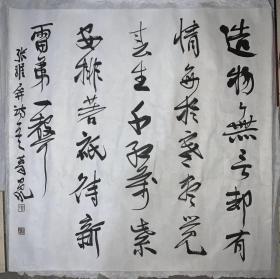 造物無言却有
情每於寒盡覺
春生千紅萬紫
安排著祗待新
雷第一聲
張維屏詩